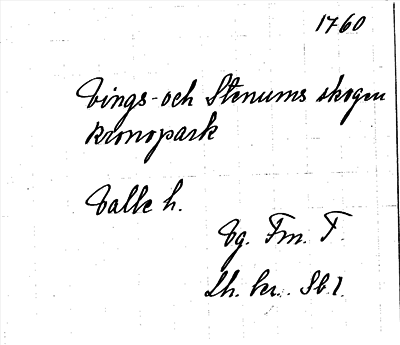 1760
Vings- och Stenums skogen
kronopark
Valle h.
Vg. Fm. F.
Lh. kr. Sb. 1.